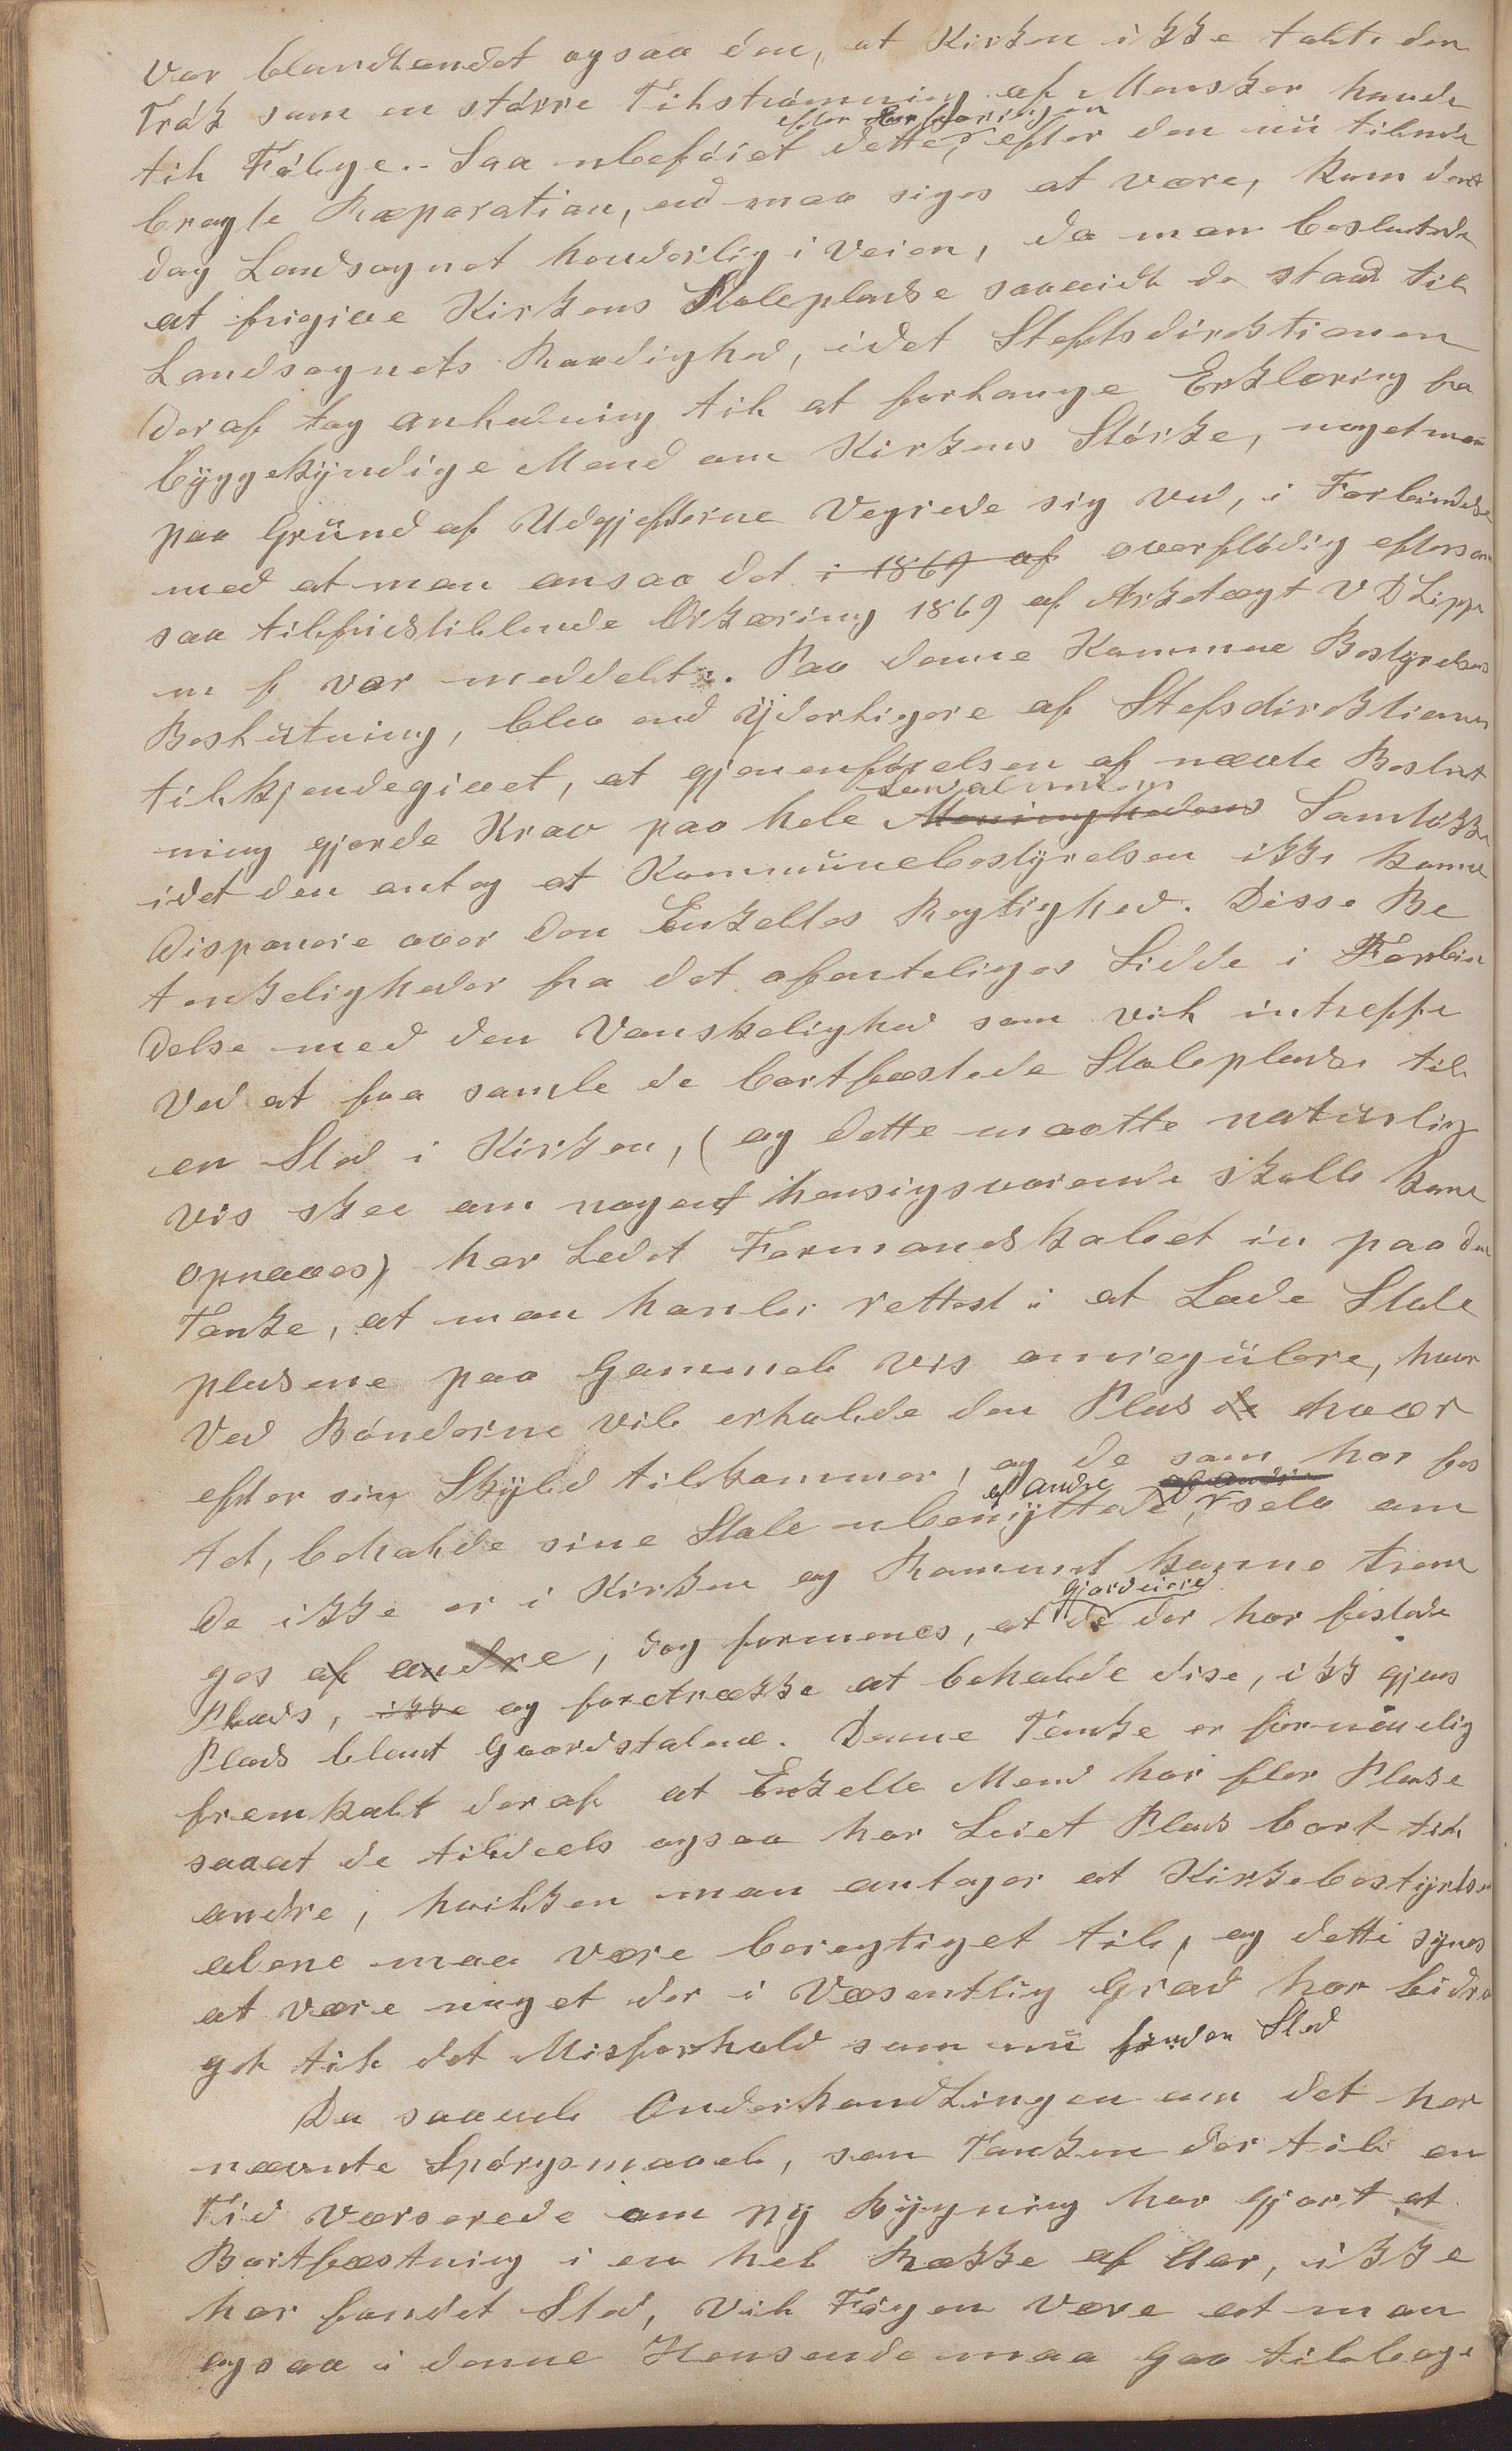 var blandtandet ogsaa den, at Kirken ikke talte den
Tråk som en større Tilstrømning af Mensker havde
til Følge.. Saa ubeføiet dette, efter den nu tilende
bragte Ræparation, end maa siges at være, kom dette
dog Landsognet hønderlig i veien, da man besluttede
at frigive Kirkens Stolepladse saavidt de stod til
Landsognets Raadighed, idet Steftsdirektionen
deraf tog anledning til at forlange Erklæring fra
byggekyndige Mend om Kirkens Störke, noget man
paa Grund af Udgjefterne Vegrede sig ved, i Forbindelse
med at man ansaa det i 1869 af overflödig eftersom
saa tilfridstillende Erkæring 1869 af Arketægt V D Lippe
m f var meddelt. Paa denne Kommue Bestyrelsens
Beslutning, blev end Yderligere af Stefsdirektionen
tilkjendegivet, at gjenenförelsen af nævte Beslut
ning gjorde Krav paa hele Menighedens Samtökke
idet den antog at Kommunebestyrelsen ikke kunne
disponere over den Enkeltes Regtighed. Disse Be
tenkeligheder fra det ofenteliges Sidde i Forbin
delse med den Vanskelighed som vil intreffe
Ved at faa samle de bortfæstede Stolepladse til
en Sted i Kirken, (og dette maatte naturlig
vis skee om noget hensigsvarende skulle kune
opnaaes) har Ledet Formandskabet in paa den
Tanke, at man hanler rettest i at Lade Stole
pladsene paa Gammel vis omregulere, hvor
Ved Bönderne vil erholde den Plads de hvær
efter sin Skyld tilkommer, og de som har fæs
tet, beholde sine Stole ubenyttede af Andre, selv om
de ikke er i Kirken og Rommet kunne tren
ges af andre, dog formenes, at de Gjordeiere der har festede
Plads, ikke og foretrække at beholde dise, ikk gjens
Plads blant Gaardstolene. Denne Tanke er fornemelig
fremkalt deraf at Enkelte Mend har fler Pladse
saaat de tildeels ogsaa har Leiet Plads bort til
andre, hvilken man antager at Kirkebestyrelsen
alene maa være beregtiget til, og dette synes
at være noget der i Væsentlig Grad har bidra
get til det Misforhold som nu finder Sted
Da saavel Onderhandlingen om det her
nævnte Spörgsmaal, som Tanken der til en
Tid Værserede om ny Bygning har gjort at
Bortfæstning i en hel Række af Aar, ikke
har fundet Sted, Vil Følgen være at man
ogsaa i denne Hensende maa Gaa tilbage